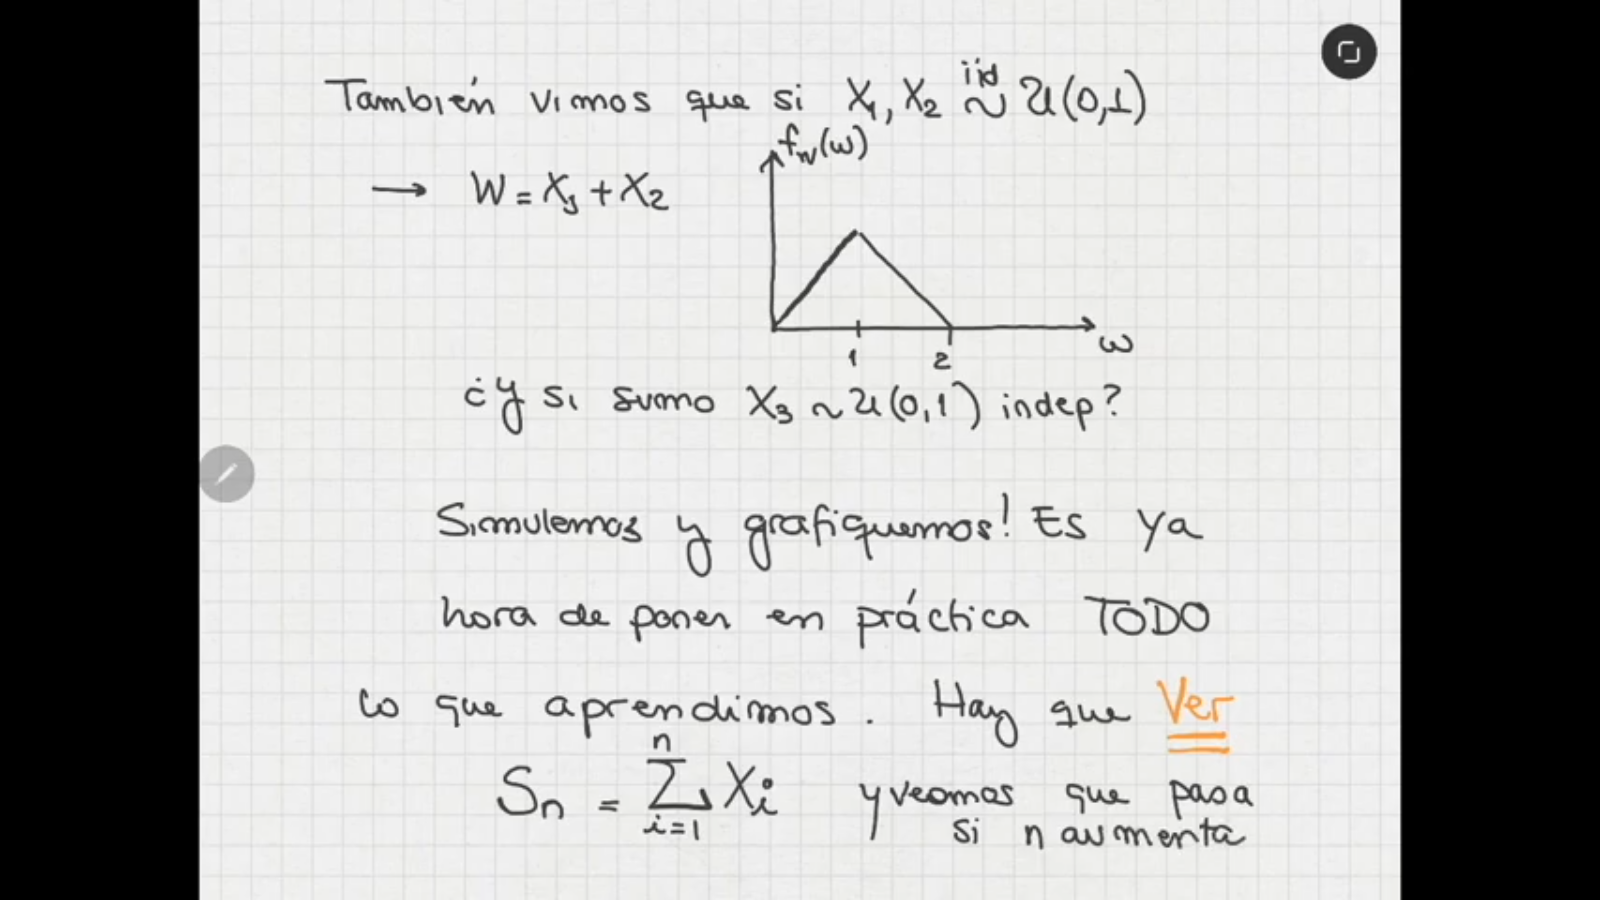 También vimos que si X₁, X₂ iid ~ U(0,1)
→ W = X₁ + X₂
f_W(w)
1 2 ω
¿Y si sumo X₃ ~ U(0,1) indep?
Simulemos y grafiquemos! Es ya
hora de poner en práctica TODO
lo que aprendimos. Hay que Ver
Sn = ∑_{i=1}^{n} Xi y veamos que pasa
si n aumenta